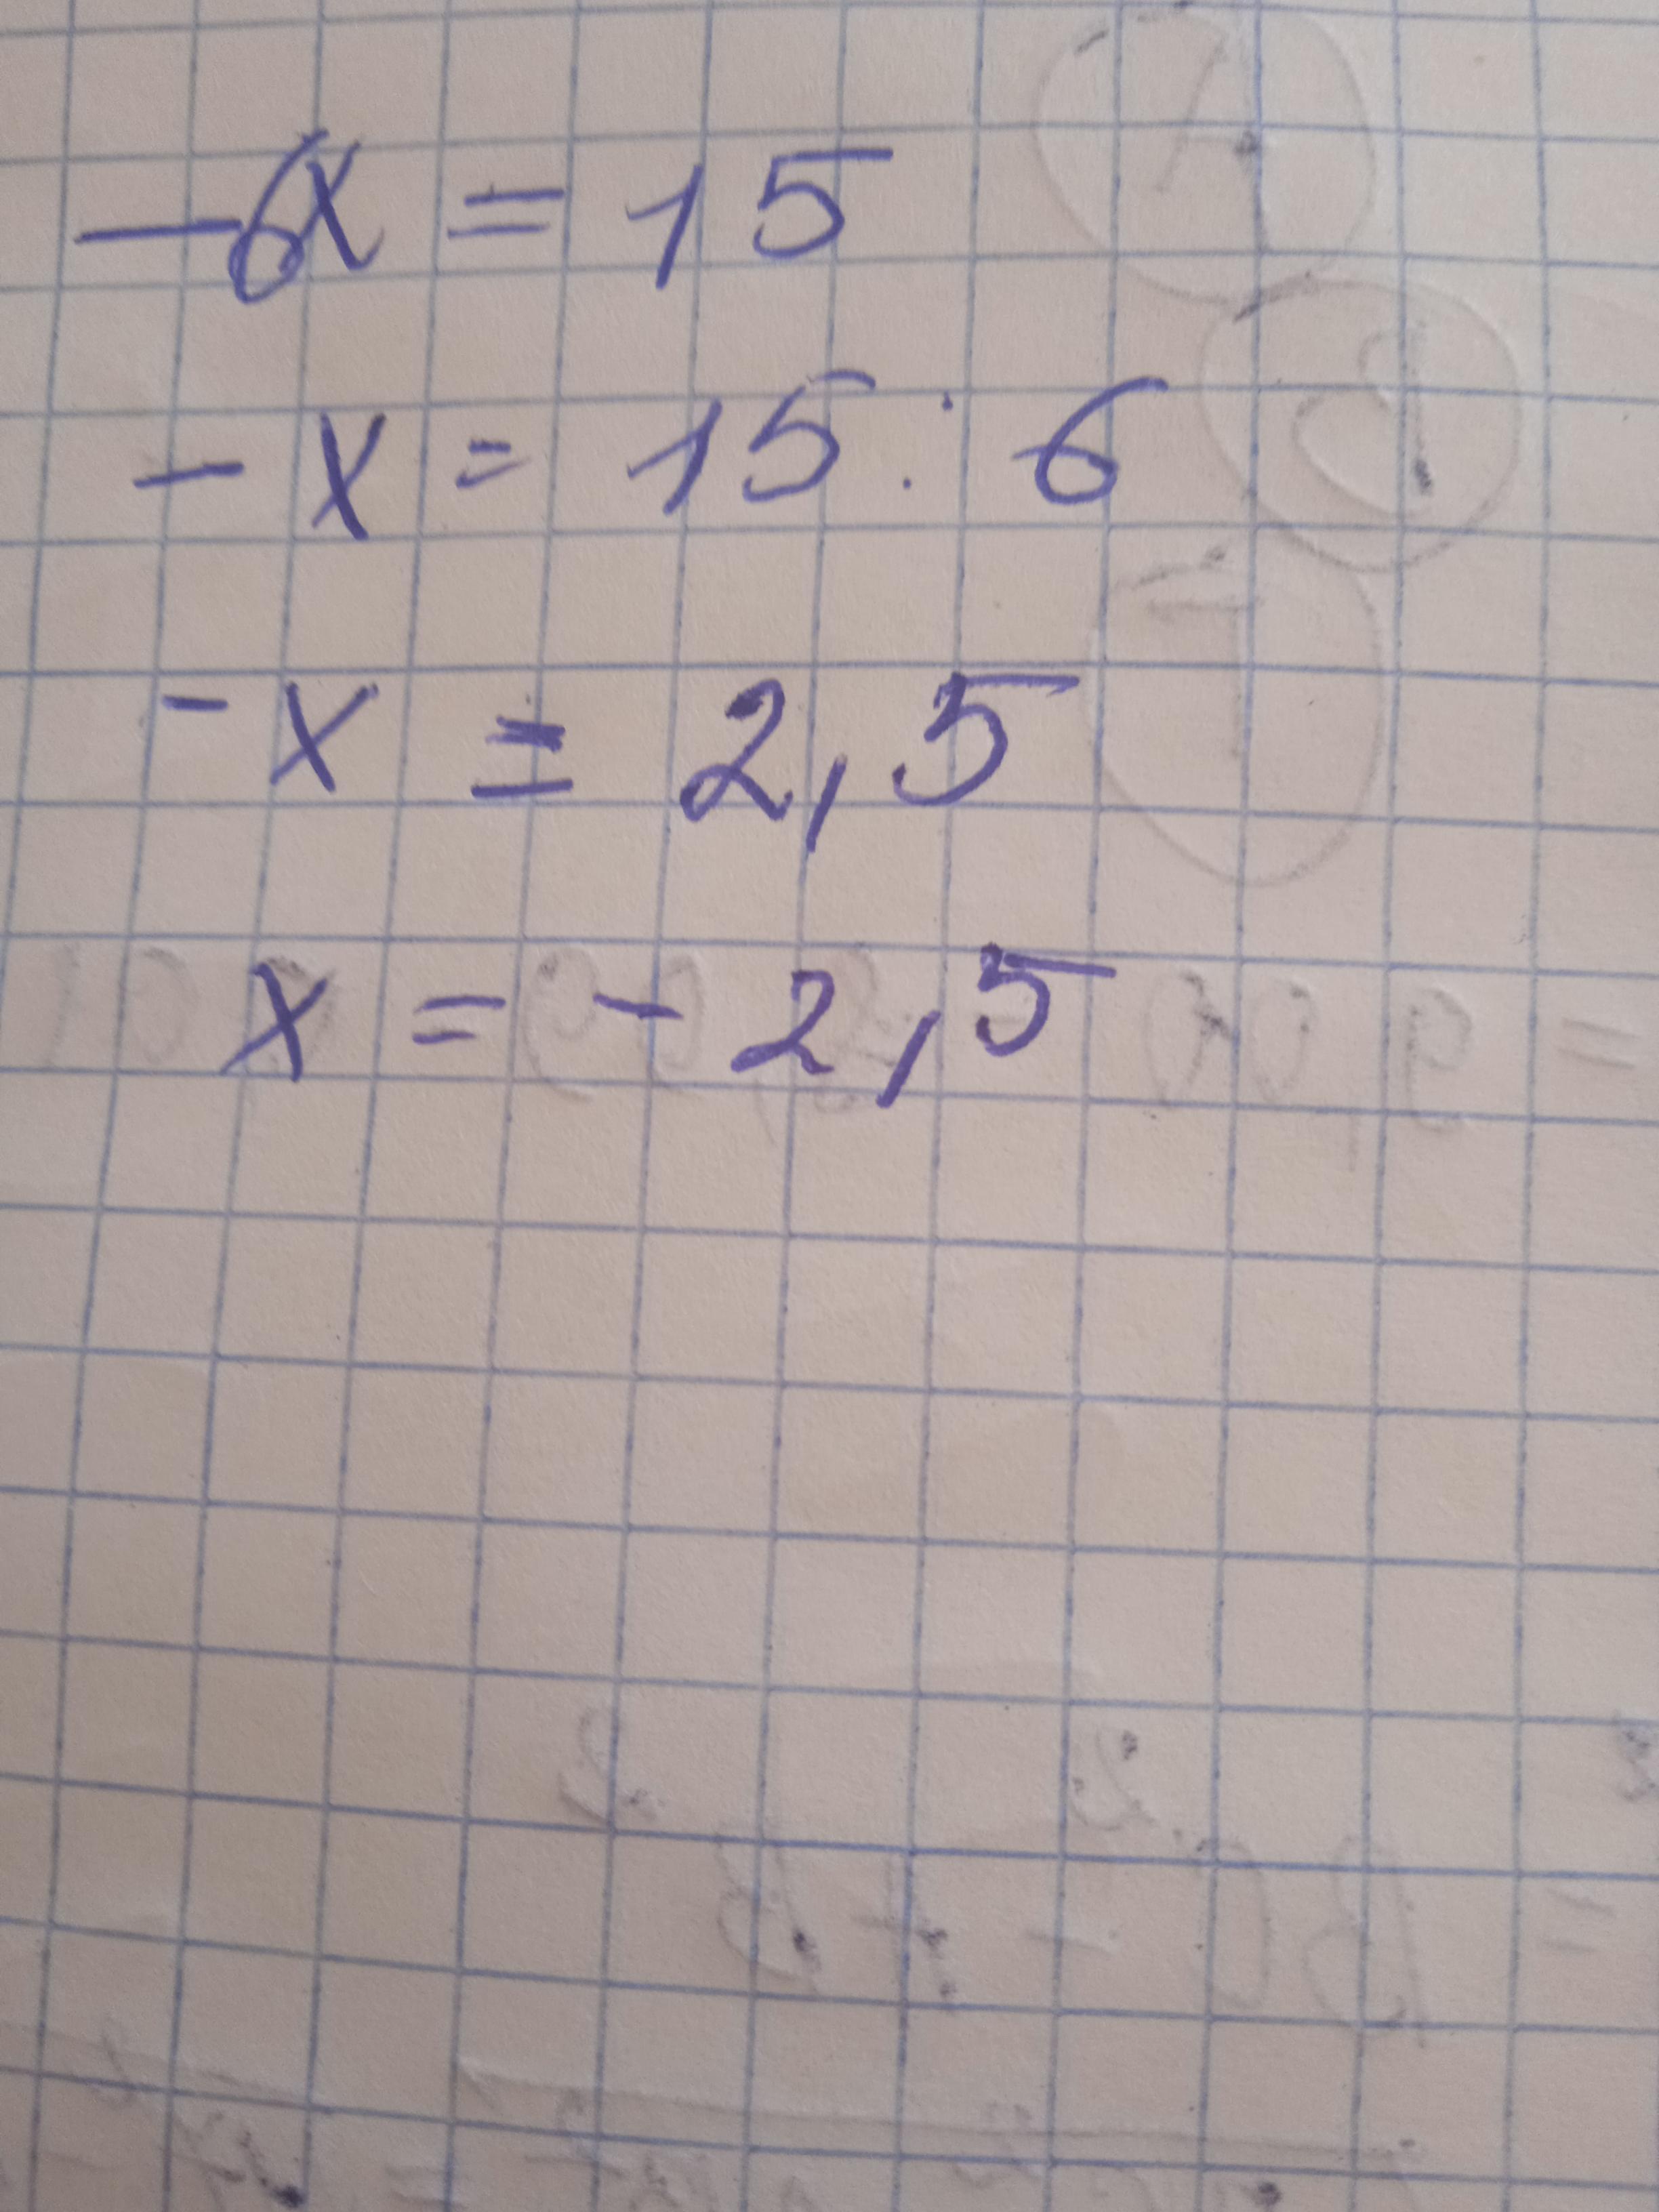 -6x = 15
-x = 15 : 6
-x = 2,5
x = -2,5